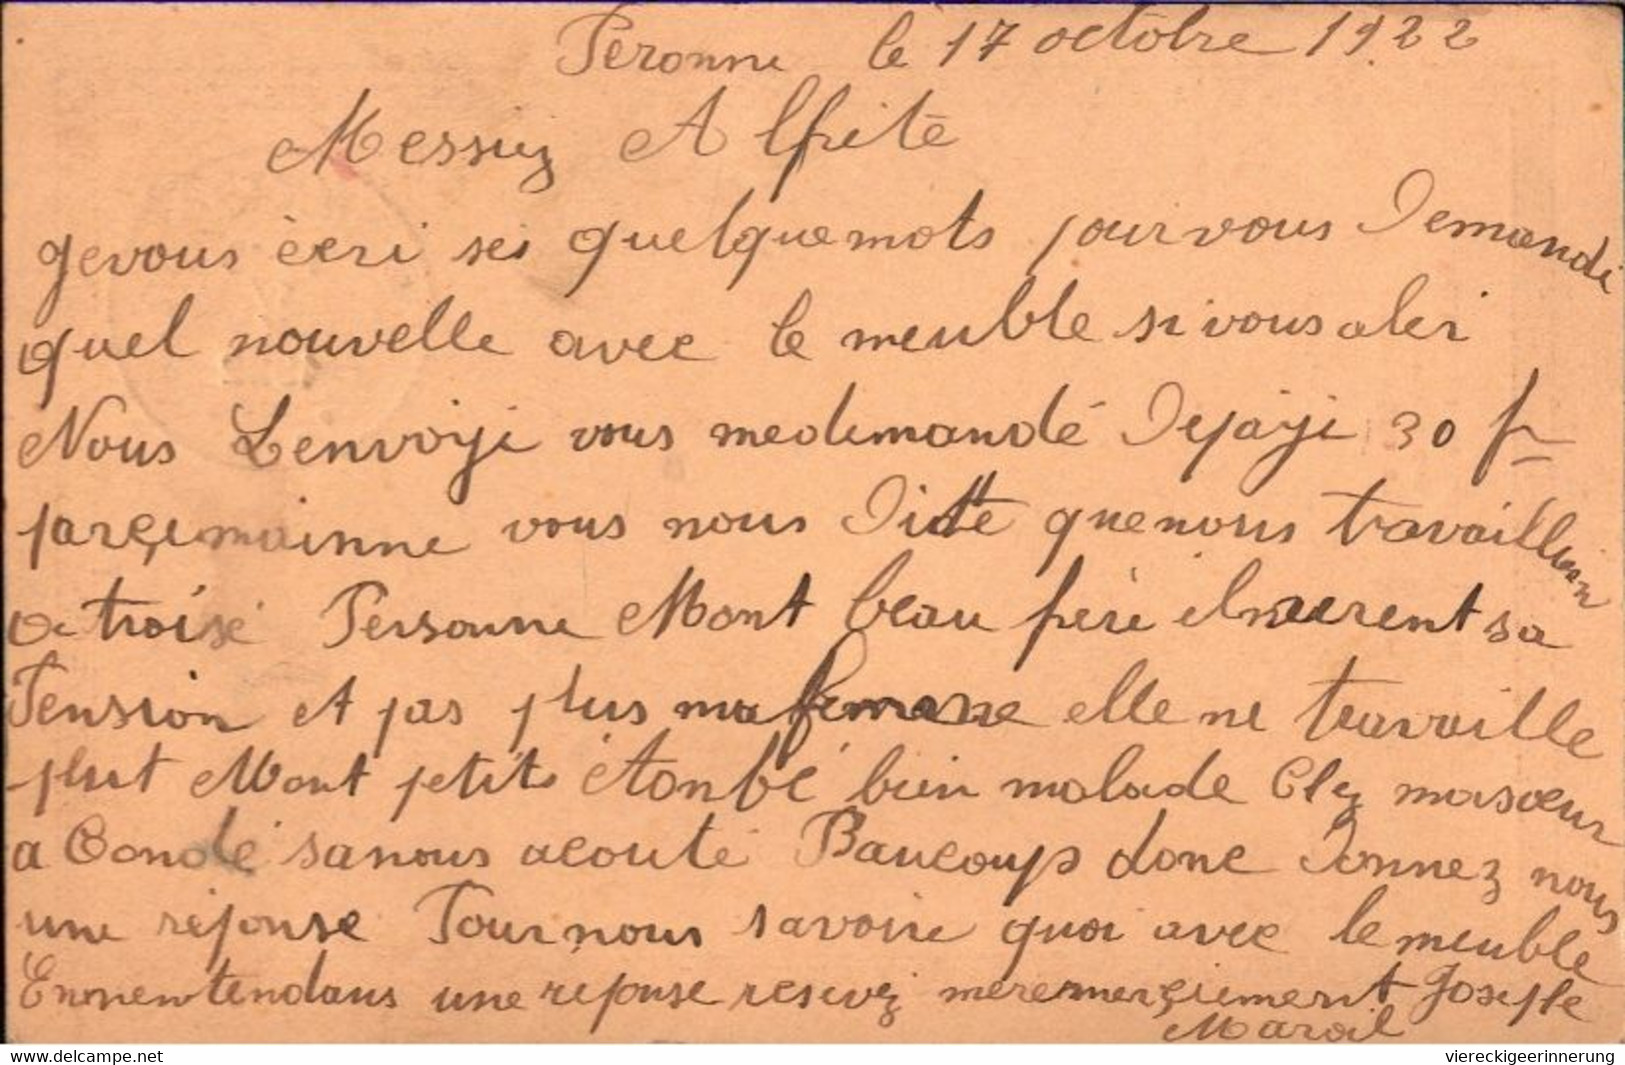 Peronne le 17 octobre 1922
Messiez Alfrite
gevous ècri ses quelquemots pour vous Demandé
quel nouvelle avec le meuble si vous aler
Nous Lenvoyé vous medemandé Depayé 30 fr
parçemainne vous nous Ditte quenous travaillion
a troise Personne Mont beau père il sa
Pension et pas plus mafemme elle ne travaille
plut Mont petits étonbé bien malade Clez masœur
a Condé sanous acouté Baucoup donc Donnez nous
une réponse Pournous savoire quoi avec le meuble
Ennewtendans une réponse resevez meremerçiement Josephe
Maroil
viereckigeerinnerung
www.delcampe.net